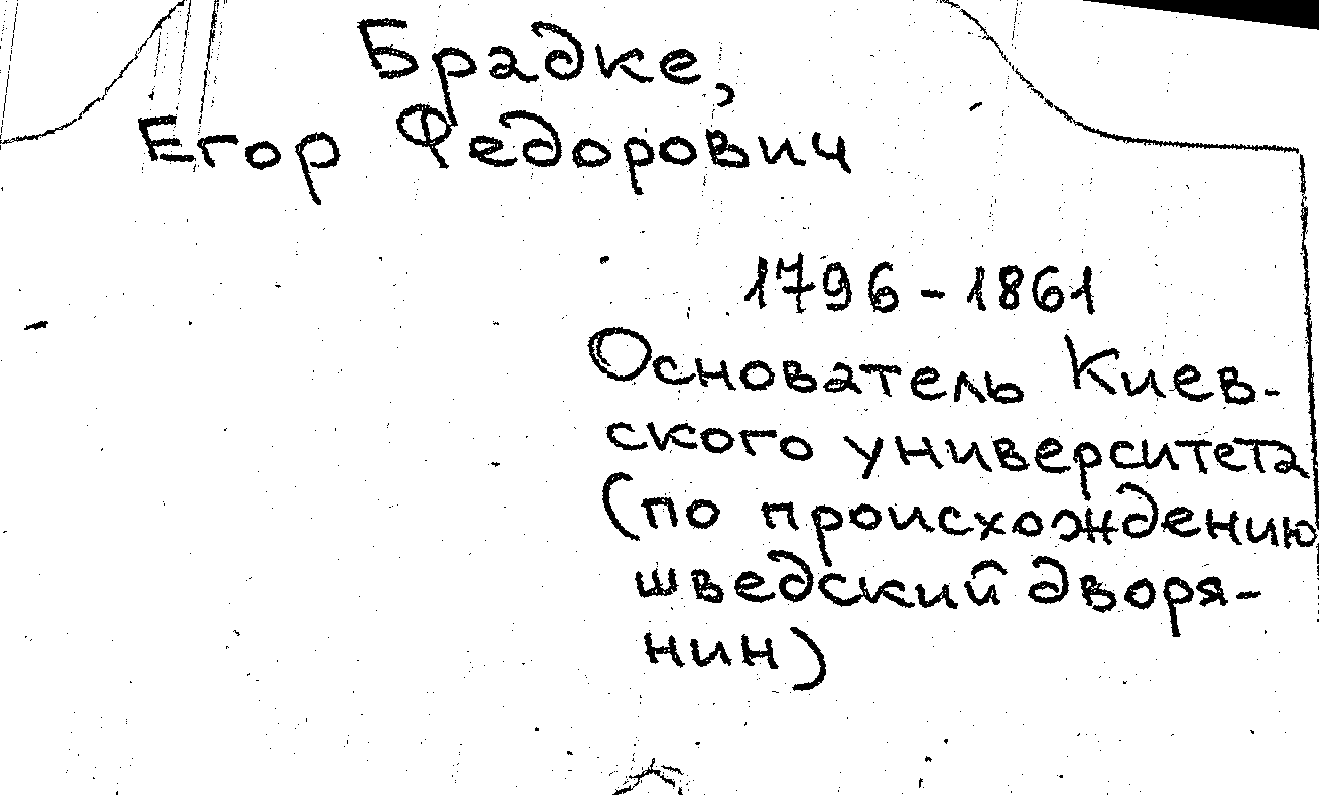 Брадке,
Егор Федорович
1796-1861
Основатель Киев-
ского университета
(по происхождению
шведский дворя-
нин)